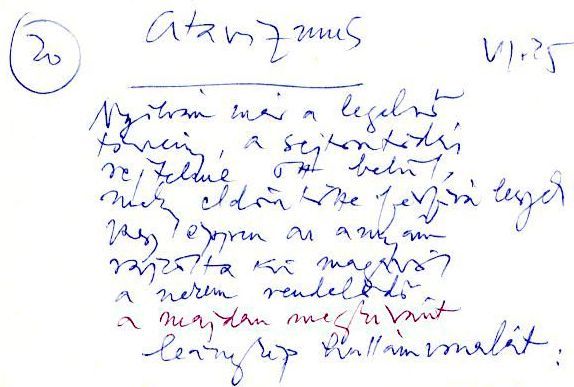 20 Atavizmus VI. 25
Nyilván már a legelső
törvény, a sejtosztódás
rejtelme ott belül,
mely eldöntötte férfivá legyek
vagy éppen az anyám
rajzolta ki magából
a nekem rendelődő
a majdan megkívánt
leánykép hullámvonalát: